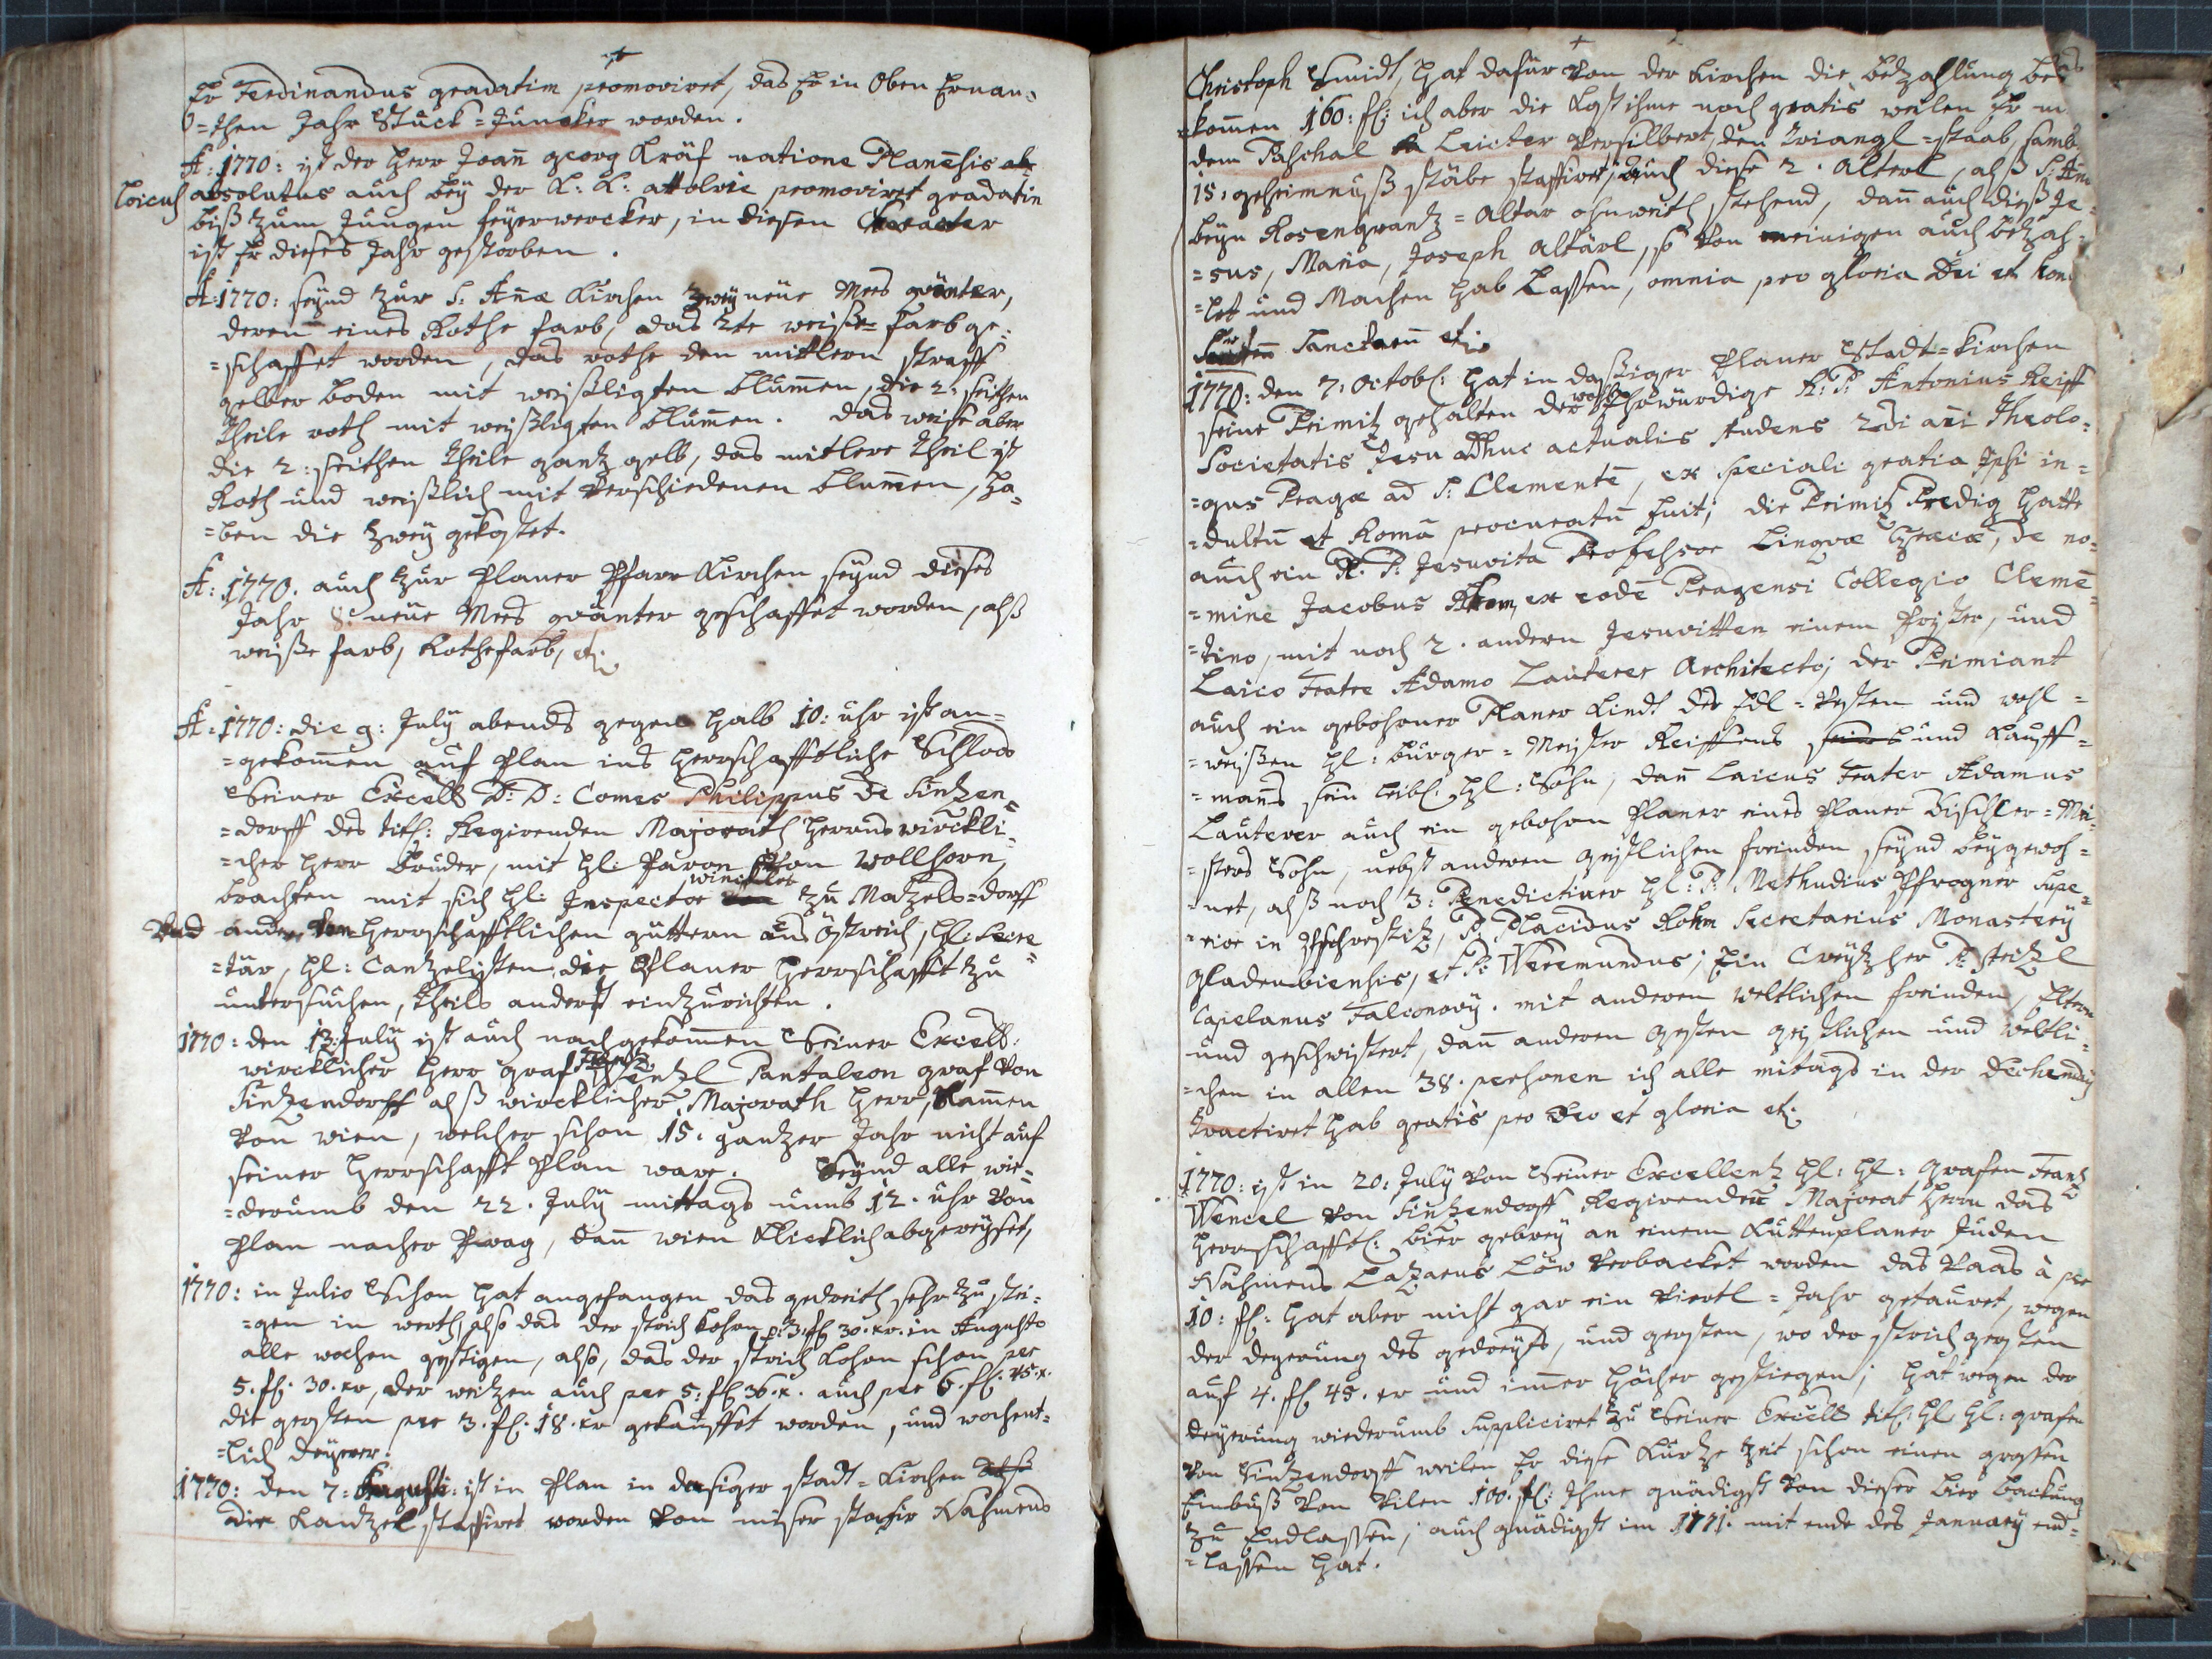 Er Ferdinandus gradatim promoviret, das Er in Oben Ernan-
=then Jahr Stuck=Juncker worden.
A: 1770: ist der Herr Joan̄ georg Kräf natione Planēsis
loicus absolutus auch beÿ der K: K: attolrie promoviret gradatim
biß zum Jungen feÿerwercker, in diesen Caracter
ist Er dieses Jahr gestorben.
A: 1770: seÿnd zur S: Añæ Kirchen zweÿ neüe Mes gwänter,
deren eines Rothe farb, das 2te weiße farb ge=
=schaffet worden, das rothe den mittlern straiff
gelber boden mit weißligten blum̄en, die 2: seithen
theile roth mit weißligten blum̄en. das weise aber
die 2: seithen theile gantz gelb, das mitlere theil ist
Roth und weißlich mit verschiedenen blum̄en, ha=
=ben die zweÿ gekostet.
A: 1770. auch zur Planer Pfarr Kirchen seÿnd dieses
Jahr 8: neüe Mes gwänter geschaffet worden, alß
weiße farb, Rothe farb, etc:
A: 1770: die 9: Julÿ abends gegen halb 10: uhr ist an=
=gekom̄en auf Plan ins herrschafftliche Schloss
Seiner Excell D: D: Comes Philippus de Sintzen=
=dorff des titl: Regirenden Majorath herrns wirckli=
=cher Herr Bruder, mit Hl: Paron von Vollhorn,
brachten mit sich Hl: Inspector winckler zu Matzels=dorff
Und andern herrschafftlichen güttern aus Östreich, Hl: Secre=
=tär, Hl: Cantzelisten, die Planer Herrschafft zu
untersuchen, theils anderst einzurichten.
1770: den 13: Julÿ ist auch nachgekom̄en Seiner Excell:
wircklicher Herr graf Frantz Wentzl Pantaleon graf von
Sintzendorff alß wircklicher Majorath Herr, kam̄en
von wien, welcher schon 15. gantzer Jahr nicht auf
seiner Herrschafft Plan ware. Seÿnd alle wie=
=derumb den 22. Julÿ mittags umb 12. uhr von
Plan nacher Prag, dan̄ wien klicklich abgereÿset,
1770: in Julio Schon hat angefangen das gedreith sehr zu stei=
=gen in werth, also das der strich Kohrn p: 3. fl 30. xr. in Augusto
alle wochen gestigen, also, das der strich Kohrn schon per
5. fl: 30. xr, der weitzen auch per 5: fl 36. x. auch per 6. fl: 45. x.
die gersten per 3. fl. 18. xr gekauffet worden, und wochent=
=lich deÿerer.
1770: den 7: Augusti: ist in Plan in dasiger stadt=Kirchen
die Kantzel staffiret worden von unser stafir Nahmens
Christoph Smidt, hat dafür von der Kirchen die betzahlung be
=kom̄en 160: fl: ich aber die Kost ihme noch gratis weilen Er
dem Paschal Leichter versilbert, den trianglstaab, samb
15: geheimnuß stäbe staffiret, auch diese 2. altärl, alß S: An
beÿn Rosenkrantz=altar ohnweith stehend, dan̄ auch dieß Je=
=sus, Maria, Joseph altärl, so von meinigen auch betzah=
=let und Machen hab Lassen, omnia pro gloria Dei et hon
Sanctoru etc:
1770: den 7: Octobl: hat in dasiger Planer Stadt=Kirchen
seine Primitz gehalten der wohl Ehrwürdige R: P: Antonius Reiff
Societatis Jesu adhuc actualis studens 2di ani Theolo=
=gus Pragæ ad S: Clementē, ex speciali gratia Ipsi in=
=dultu et Roma procuratu fuit; die Primitz Predig hatte
auch ein R: P: Jesuvita Professor Lingvæ Græcæ, de no=
=mine Jacobus, ex eodē Pragensi Collegio Clemē=
=tino, mit noch 2. andern Jesuvitten einem Prister, und
Laico Fratre Adamo Lauterer Architecto; der Primiant
auch ein gebohrner Planer Kindt des Edl=vesten und wohl=
=weißen Hl: burger=Meister Reiffens und Kauff=
=mans sein leibl: Hl: Sohn, dan̄ Laicus frater Adamus
Lauterer auch ein gebohrn Planer eines Planer Tischler=Mei=
=sters Sohn, nebst anderen geistlichen freinden seÿnd beÿgewoh=
=net, alß noch 3: Benedictiner Hl: P: Methudius Pfrogner Supe=
=rior in, P: Placidus Rohm Secretarius Monasterÿ
Gladenbiensis, et P: Veremundus; Ein Creÿtzher P: Steitzl
Capelanus Falconovÿ. mit anderen weltlichen freinden, Eltern
und geschwistert, dan̄ anderen gesten geistlichen und weltli=
=chen in allen 38. personen ich alle mitags in der Dechendeÿ
tractiret hab gratis pro Deo et gloria etc.
1770: ist in 20: Julÿ von Seiner Excellentz Hl: Hl: Grafen Frantz
Wencel von Sintzendorff Regirenden Majorat Herrn das
Herrschafftl: bier gebreÿ an einem Kuttenplaner Juden
Nahmens Lazarus Löw verbacket worden das Vaas à per
10: fl: hat aber nicht gar ein viertl=Jahr getauret, wegen
der degerung des gedreÿds, und gersten, wo der strich gersten
auf 4. fl 45. xr und im̄er höcher gestiegen; hat wegen der
deÿerung wiederumb suppliciret zu Seiner Excell titl: Hl Hl: grafen
von Sintzendorff weilen Er diese Kurtze zeit schon einen grossen
Einbuß von vilen 100. fl: Ihme gnädigst von dieser bier backung
zu Endlassen; auch gnädigst im 1771. mit ende des Januarÿ end=
=lassen hat.